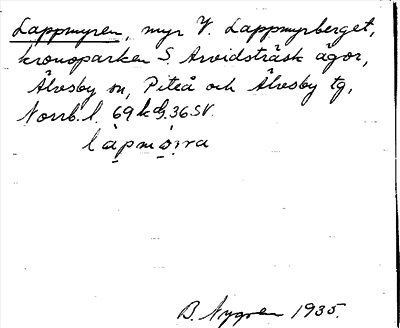 Lappmyren, myr V. Lappmyrberget,
kronoparken S. Arvidsträsk ägor,
Älvsby sn, Piteå och Älvsby tg,
Norrb. l. 69 k d. 36 SV.
B. Nygren 1935.